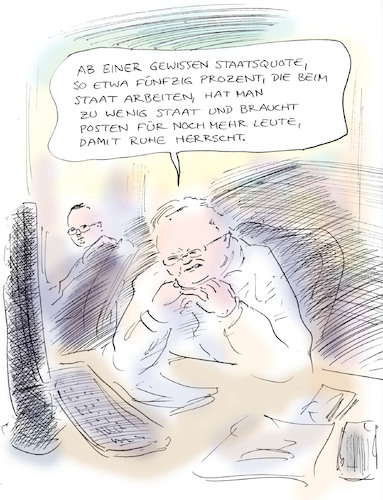 AB EINER GEWISSEN STAATSQUOTE,
SO ETWA FÜNFZIG PROZENT, DIE BEIM
STAAT ARBEITEN, HAT MAN
ZU WENIG STAAT UND BRAUCHT
POSTEN FÜR NOCH MEHR LEUTE,
DAMIT RUHE HERRSCHT.